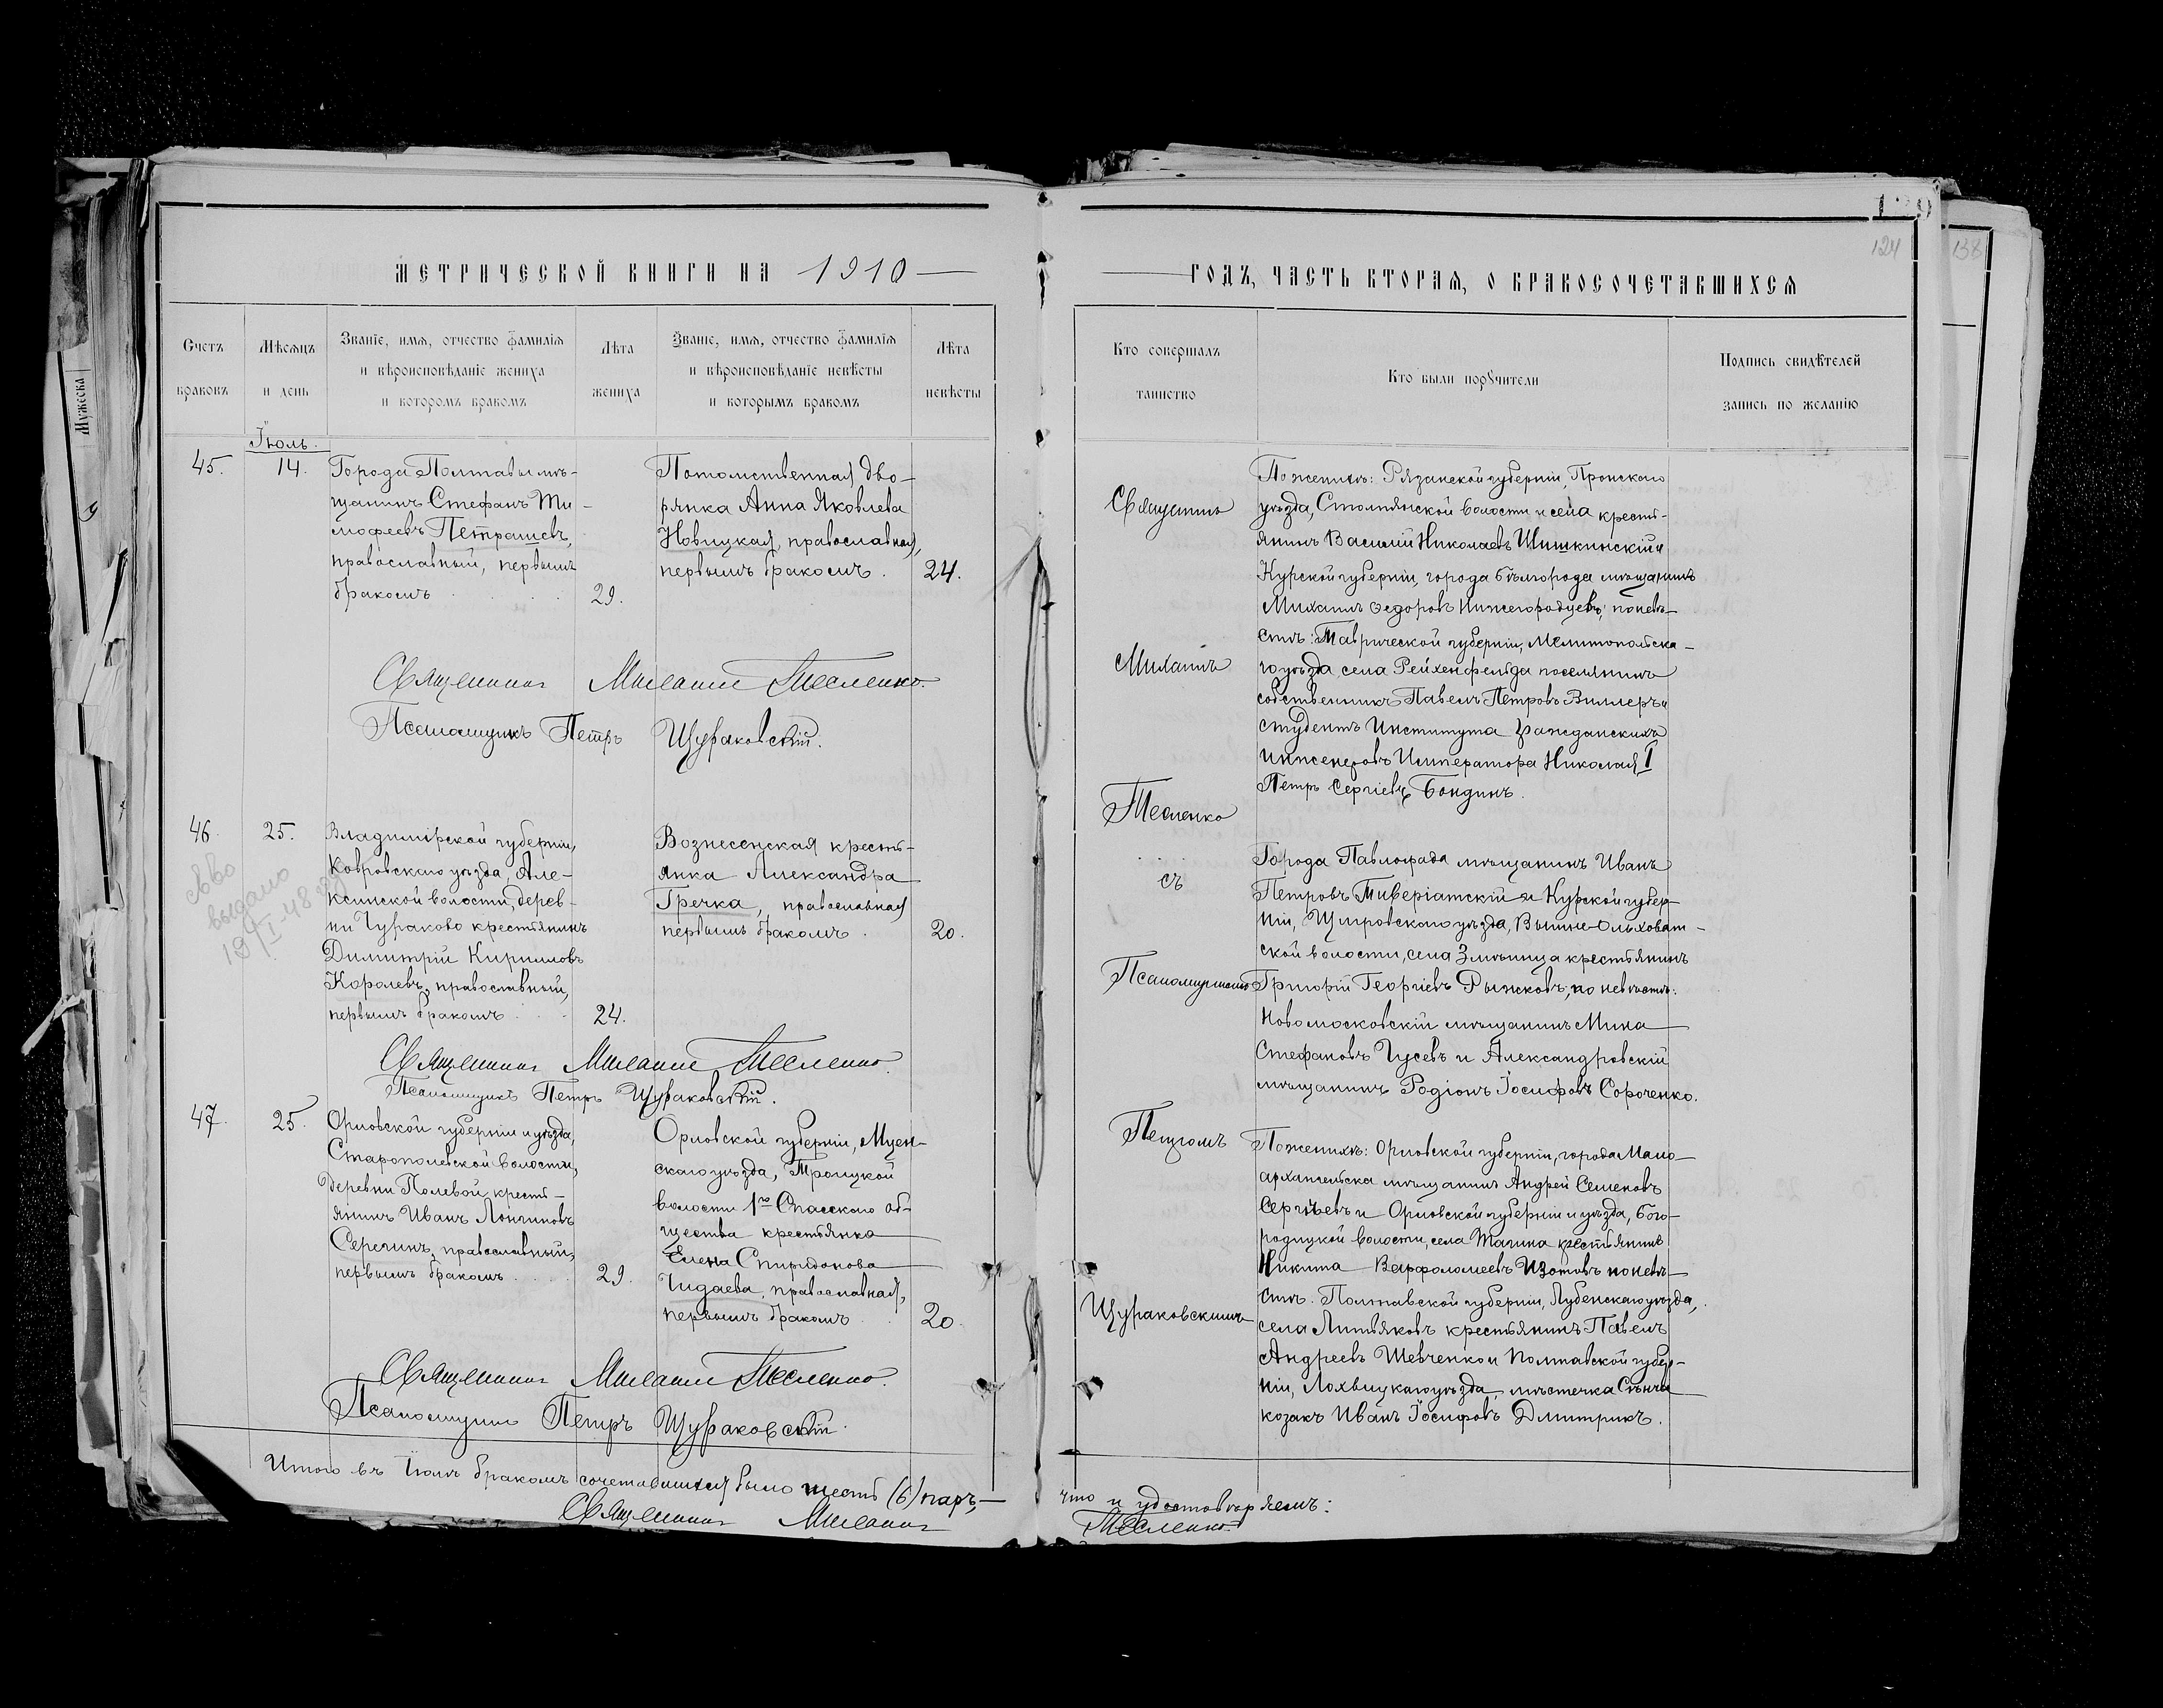 МЕТРИЧЕСКОЙ КНИГИ НА 1910
Счетъ браковъ
Мѣсяцъ и день
Званіе, имя, отчество фамилія
и вѣроисповѣданіе жениха
и которомъ бракомъ
Лѣта жениха
Званіе, имя, отчество фамилія
и вѣроисповѣданіе невѣсты
и которымъ бракомъ
Лѣта невѣсты
Іюль.
45.
14.
Города Полтавы мѣ-
щанинъ Стефанъ Ти-
мофеевъ Петрашевъ,
православный, первымъ
бракомъ
29.
Потомственная дво-
рянка Анна Яковлева
Новицкая, православная,
первымъ бракомъ.
24.
Священникъ Михаилъ Тесленко.
Псаломщикъ Петръ Щураковскій.
46.
25.
Владимірской губерніи,
Ковровскаго уѣзда, Але-
ксинской волости, дерев-
ни Чураково крестьянинъ
Димитрій Кирилловъ
Королевъ, православный,
первымъ бракомъ
24.
Вознесенская кресть-
янка Александра
Гречка, православная
первымъ бракомъ.
20.
св-во
выдано
19/I-48
Священникъ Михаилъ Тесленко.
Псаломщикъ Петръ Щураковскій.
47.
25.
Орловской губерніи и уѣзда,
Старопольской волости,
деревни Полевой, кресть-
янинъ Иванъ Лонгиновъ
Серегинъ, православный,
первымъ бракомъ
29.
Орловской губерніи, Мцен-
скаго уѣзда, Троицкой
волости 1го Спасскаго об-
щества крестьянка
Елена Спиридонова
Чидаева, православная,
первымъ бракомъ
20.
Священникъ Михаилъ Тесленко.
Псаломщикъ Петръ Щураковскій.
Итого въ Іюлѣ бракомъ сочетавшихся было шесть (6) паръ,
Священникъ Михаилъ
Мужеска
124
138
ГОДЪ, ЧАСТЬ ВТОРАЯ, О БРАКОСОЧЕТАВШИХСЯ
Кто совершалъ таинство
Кто были поручители
Подпись свидѣтелей
запись по желанію
Священникъ
Михаилъ
Тесленко
съ
Псаломщикомъ
Петромъ
Щураковскимъ
По женихѣ: Рязанской губерніи, Пронскаго
уѣзда, Столпянской волости и села кресть-
янинъ Василій Николаевъ Шишкинскій и
Курской губерніи, города Бѣлгорода мѣщанинъ
Михаилъ Ѳедоровъ Нижегородцевъ; по невѣ-
стѣ: Таврической губерніи, Мелитопольска-
го уѣзда, села Рейхенфельда поселянинъ
собственникъ Павелъ Петровъ Виллеръ и
студентъ Института Гражданскихъ
инженеровъ Императора Николая I
Петръ Сергіевъ Бондинъ.
Города Павлограда мѣщанинъ Иванъ
Петровъ Тиверіатскій и Курской губер-
ніи, Щигровскаго уѣзда, Вышне-Ольховат-
ской волости, села Змѣинца крестьянинъ
Григорій Георгіевъ Рыжковъ; по невѣстѣ:
Новомосковскій мѣщанинъ Мина
Стефановъ Гусевъ и Александровскій
мѣщанинъ Родіонъ Іосифовъ Сороченко.
По женихѣ: Орловской губерніи, города Мало-
архангельска мѣщанинъ Андрей Семеновъ
Сергѣевъ и Орловской губерніи и уѣзда, Бого-
родицкой волости, села Тагина крестьянинъ
Никита Варфоломеевъ Изотовъ по невѣ-
стѣ: Полтавской губерніи, Лубенскаго уѣзда,
села Литвяковъ крестьянинъ Павелъ
Андреевъ Шевченко и Полтавской губер-
ніи, Лохвицкаго уѣзда, мѣстечка Сѣнчи
козакъ Иванъ Іосифовъ Дмитрикъ.
что и удостовѣряемъ:
Тесленко.